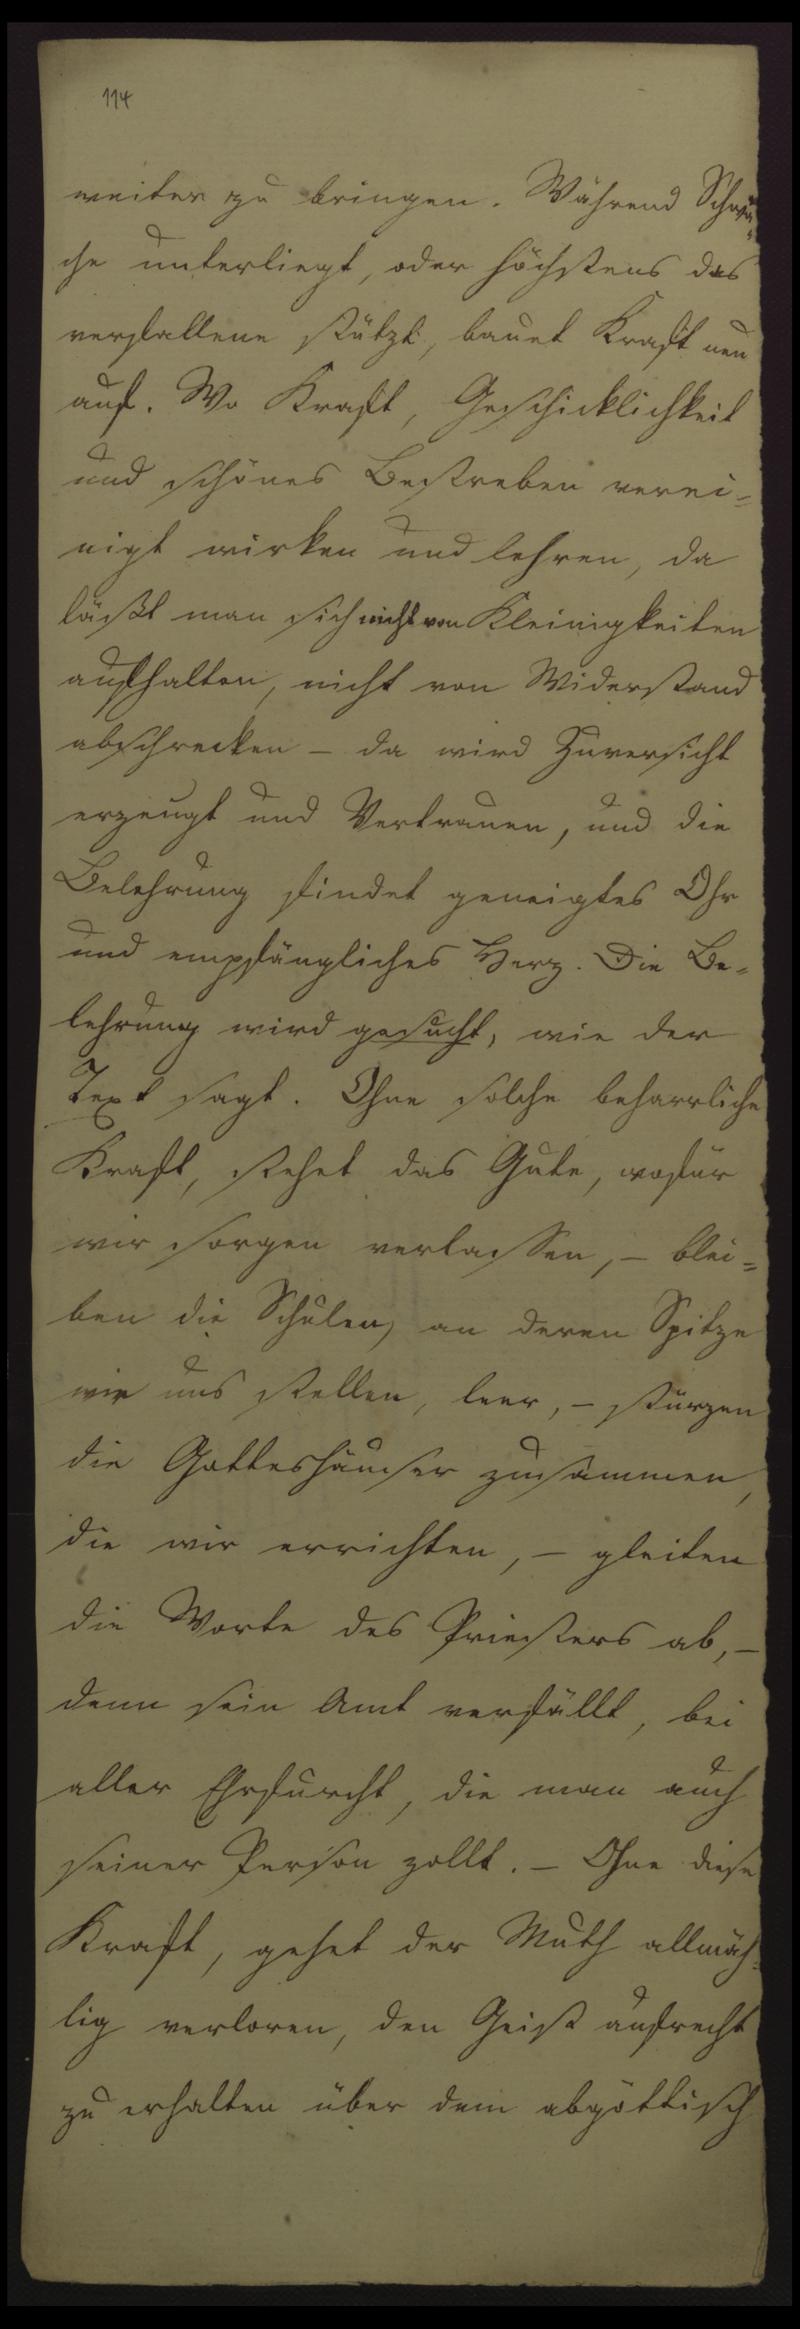 114
weiter zu bringen. Während Schwä=
che unterliegt, oder höchstens das
verfallene stützt, bauet Kraft neu
auf. Wo Kraft, Geschicklichkeit
und schönes Bestreben verei=
nigt wirken und lehren, da
läßt man sich nicht von Kleinigkeiten
aufhalten, nicht von Widerstand
abschrecken – da wird Zuversicht
erzeugt und Vertrauen, und die
Belehrung findet geneigtes Ohr
und empfängliches Herz. Die Be=
lehrung wird gesucht, wie der
Text sagt. Ohne solche beharrliche
Kraft, stehet das Gute, wofür
wir sorgen verlassen, – blei=
ben die Schulen, an deren Spitze
wir uns stellen, leer, – stürzen
die Gotteshäuser zusammen,
die wir errichten, – gleiten
die Worte des Priesters ab, –
denn sein Amt verfällt, bei
aller Ehrfurcht, die man auch
seiner Person zollt. – Ohne diese
Kraft, gehet der Muth allmäh=
lig verloren, den Geist aufrecht
zu erhalten über dem abgöttisch